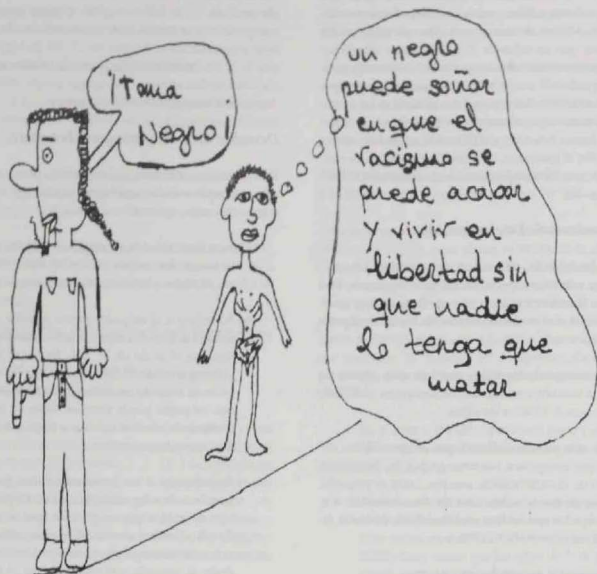 ¡Toma
Negro!
un negro
puede soñar
en que el
racismo se
puede acabar
y vivir en
libertad sin
que nadie
lo tenga que
matar